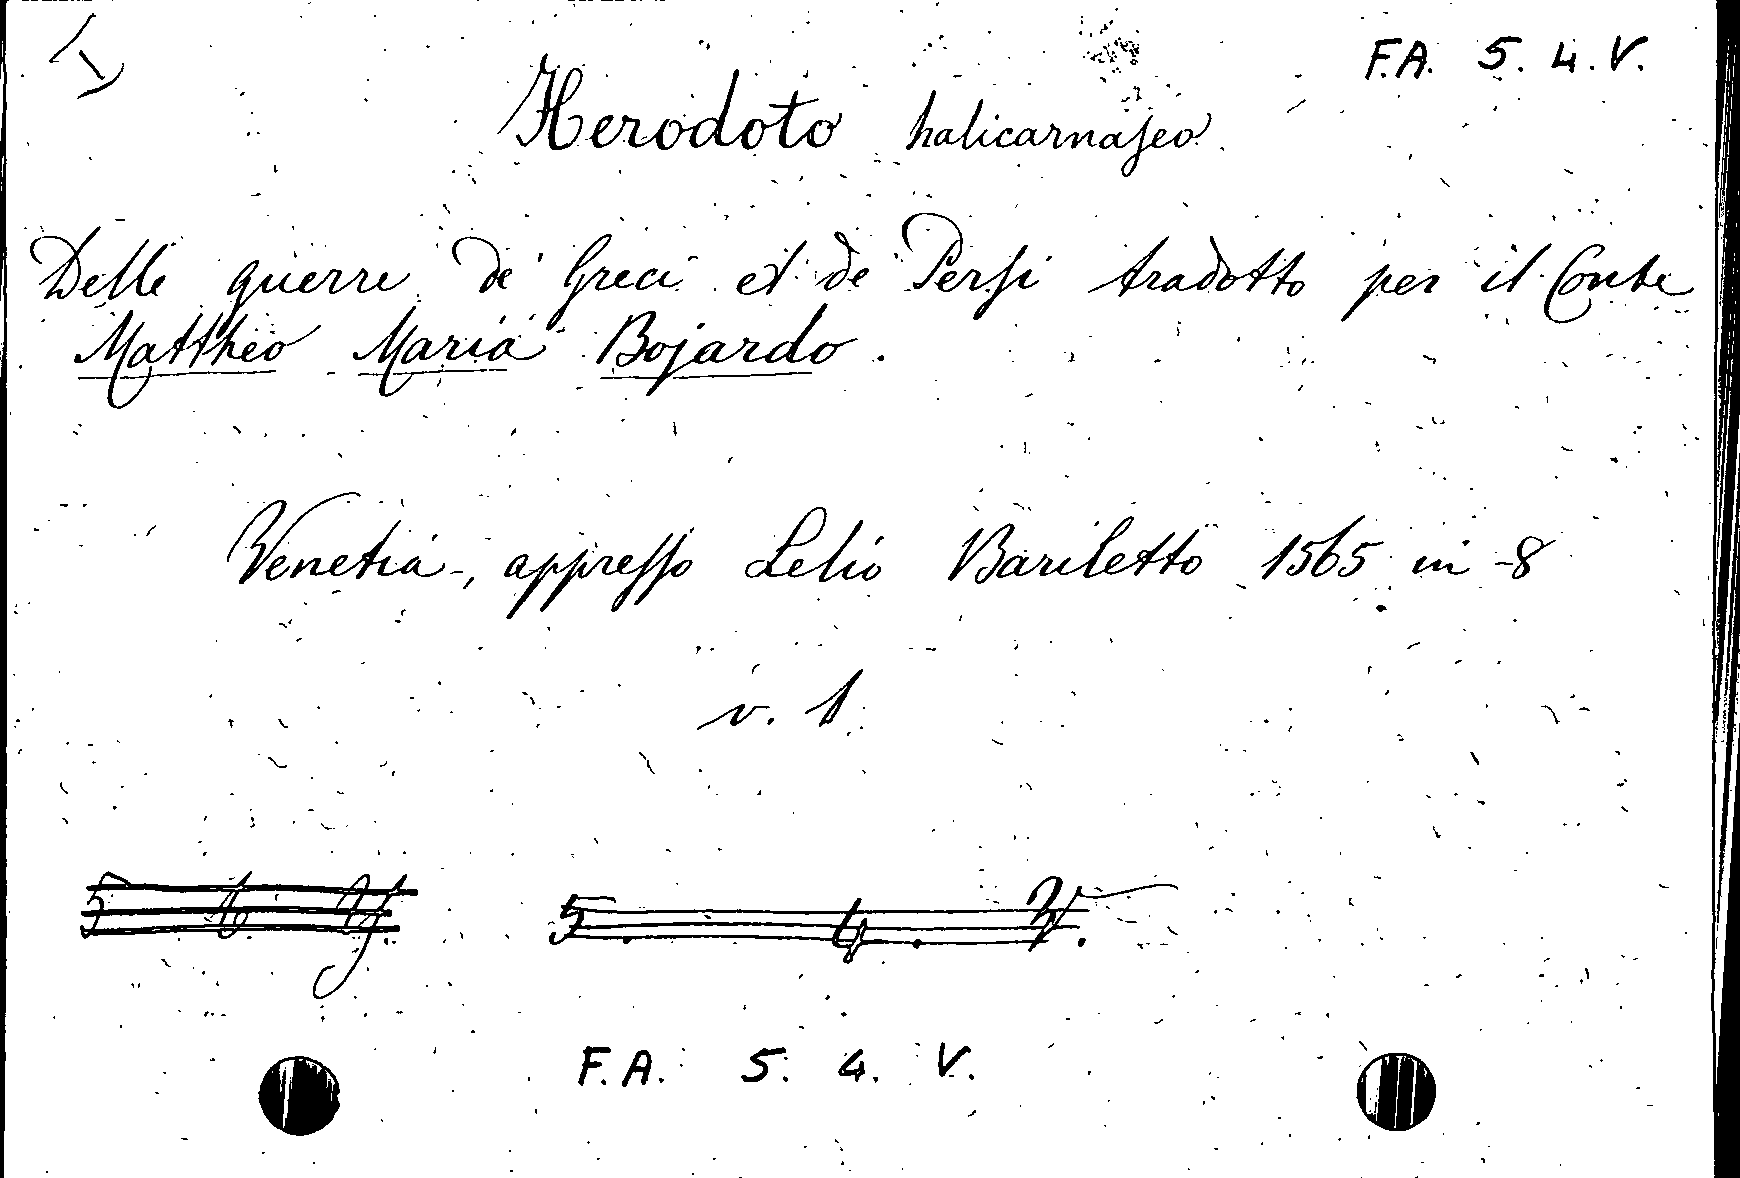 F.A. 5. 4. V.
Herodoto halicarnaseo
Delle guerre de' Greci et de' Persi tradotto per il Conte
Mattheo Maria Bojardo.
Venetia, appresso Lelio Bariletto 1565 in-8
v. 1
5. 4. V.
F.A. 5. 4. V.